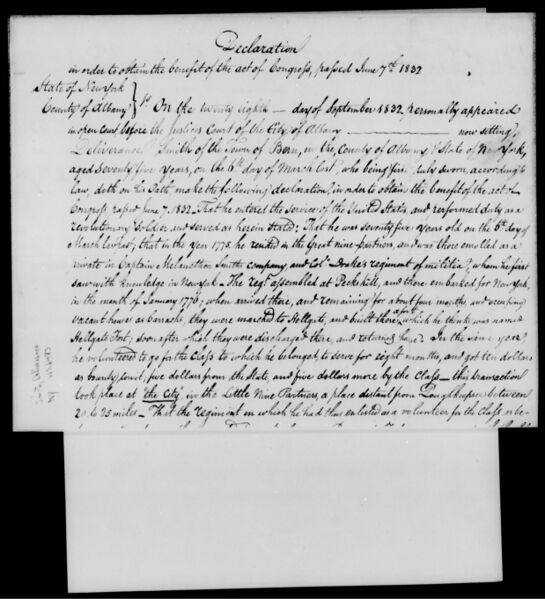 Declaration
in order to obtain the benefit of the act of Congress, passed June 7th 1832
State of New York
County of Albany } ss. On the twenty eighth — day of September 1832, personally appeared
in open court before the Justices Court of the City of Albany — now sitting,
Deliverance Smith of the Town of Bern, in the County of Albany & State of New York,
aged seventy five years, on the 6th day of March last, who being first duly sworn, according to
law, doth on his Oath make the following declaration, in order to obtain the benefit of the act of
Congress passed June 7, 1832. That he entered the service of the United States, and performed duty as a
revolutionary Soldier and served as herein stated: That he was seventy five years old on the 6th day of
March last past, that in the year 1775, he resided in the Great nine partners, and was there enrolled as a
private in Captain Melancthon Smiths company, and Col. Drake's regiment of militia, whom he first
saw with knowledge in New york — The regt assembled at Peekskill, and there embarked for New york,
in the month of January 1776, when arrived there, and remaining for about four months, and occupying
vacant houses as barracks, they were marched to Hellgate, and built there a fort which he thinks was named
Hellgate Fort, soon after which they were discharged there, and returned home. In the same year,
he volunteered to go for the Class to which he belonged, to serve for eight months, and got ten dollars
as bounty, towit, five dollars from the State, and five dollars more by the class — this transaction
took place at the City in the Little Nine Partners, a place distant from Poughkeepsie between
20 to 25 miles — That the regiment in which he had thus enlisted as a volunteer for the Class as be-
Smith, Deliverance
NY